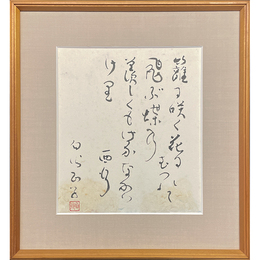 籬に咲く花に
むつれて
飛ぶ蝶の
羨しくもはかなかり
けり
西行